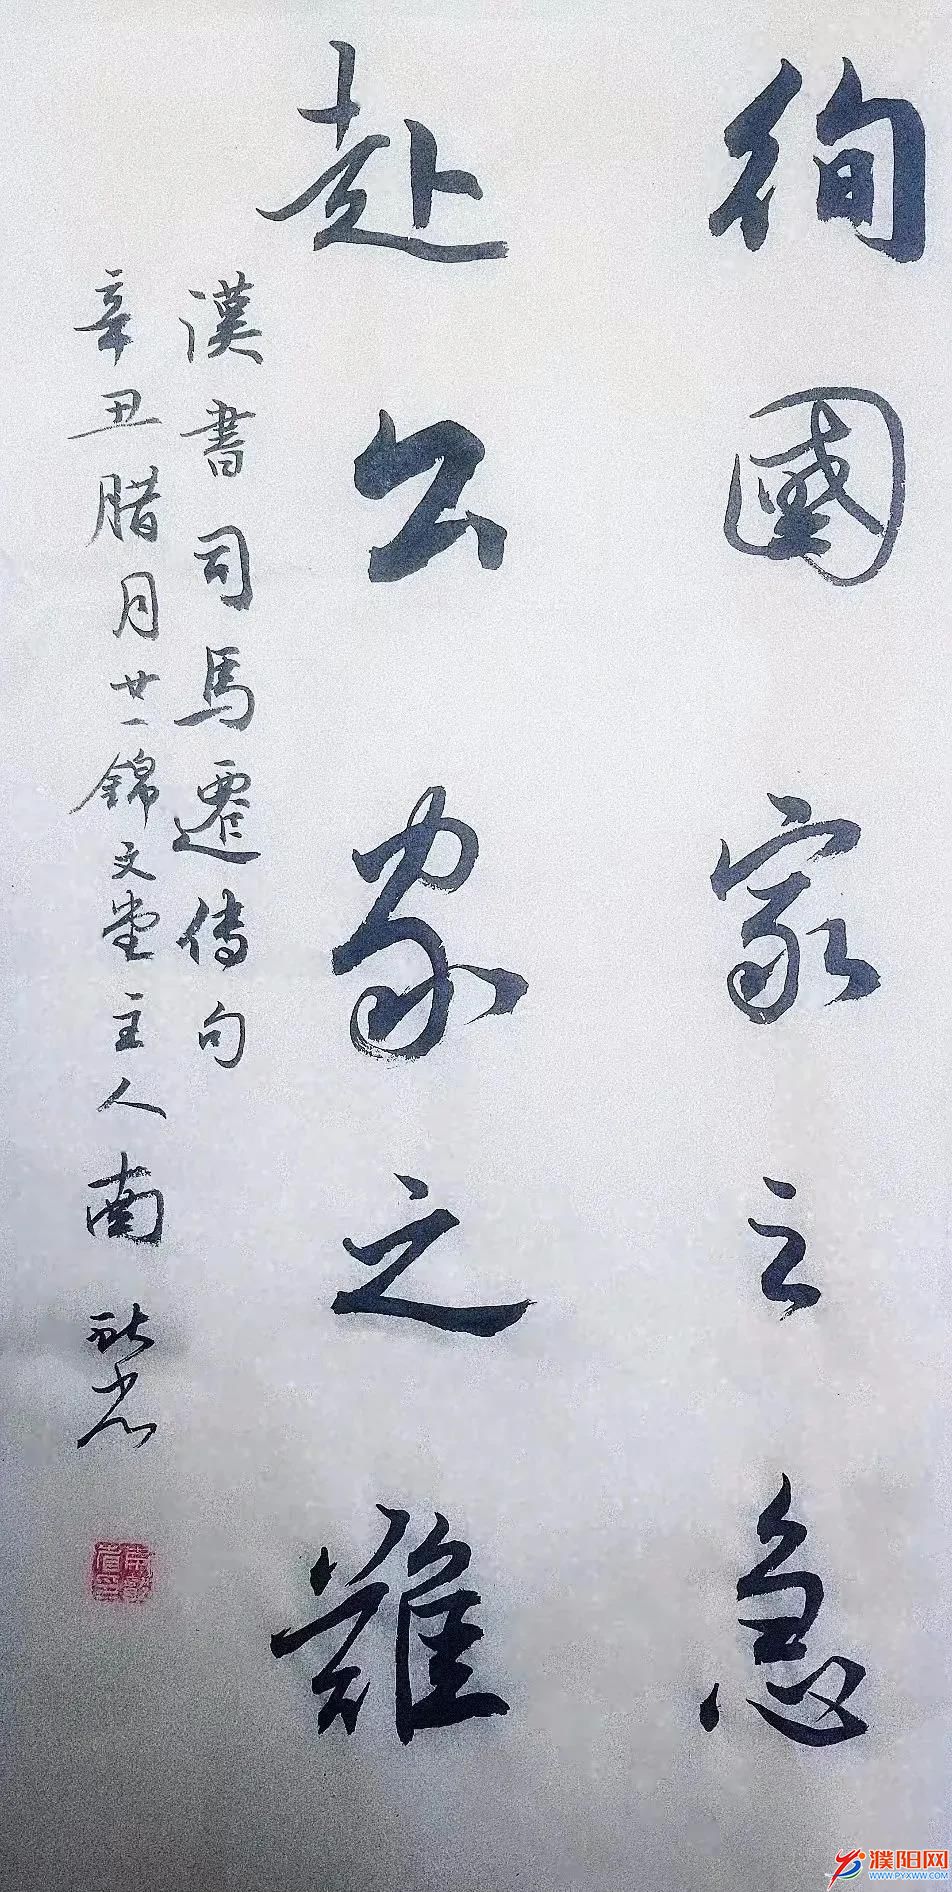 徇國家之急
赴公家之難
漢書司馬遷傳句
辛丑腊月廿一錦文堂主人南
濮阳网
WWW.PYXWW.COM